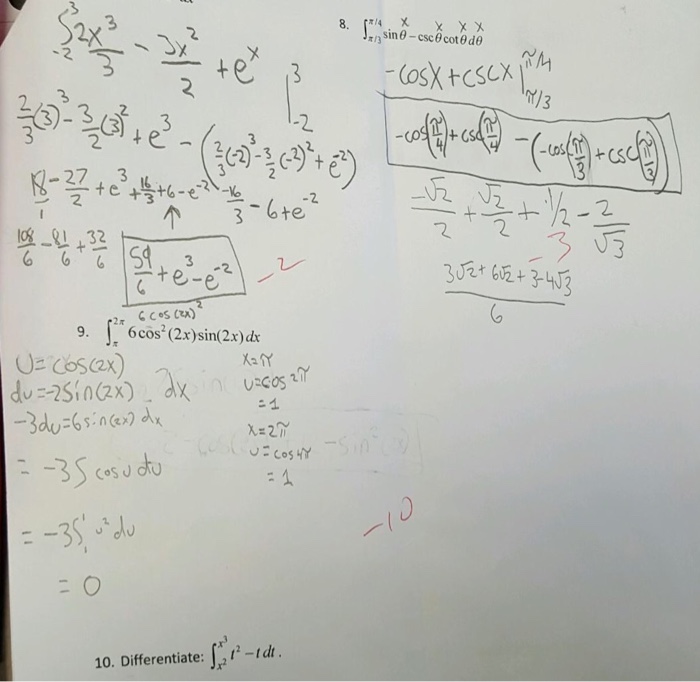 ∫_{-2}^{3} 2x³/3 - 3x²/2 + e^x |_{-2}^{3}
2/3(3)³ - 3/2(3)² + e³ - (2/3(-2)³ - 3/2(-2)² + e^{-2})
18/1 - 27/2 + e³ + 16/3 + 6 - e^{-2} -16/3 - 6 + e^{-2}
↑
108/6 - 81/6 + 32/6 59/6 + e³ - e^{-2} -2
8. ∫_{π/3}^{π/4} sinθ - cscθcotθdθ
x x x x
-cosx + cscx |_{π/3}^{π/4}
-cos(π/4) + csc(π/4) - (-cos(π/3) + csc(π/3))
-√2/2 + √2/2 + 1/2 - 2/√3
-3
3√2 + 6√2 + 3 - 4√3 / 6
6cos(2x)²
9. ∫_{π}^{2π} 6cos²(2x)sin(2x)dx
U = cos(2x)
du = -2sin(2x) dx
-3du = 6sin(2x) dx
x = π
u = cos 2π
= 1
x = 2π
u = cos 4π
= 1
= -3∫cosu du
= -3∫_{1}^{1} u² du
= 0
-10
10. Differentiate: ∫_{x²}^{x³} t² - t dt.